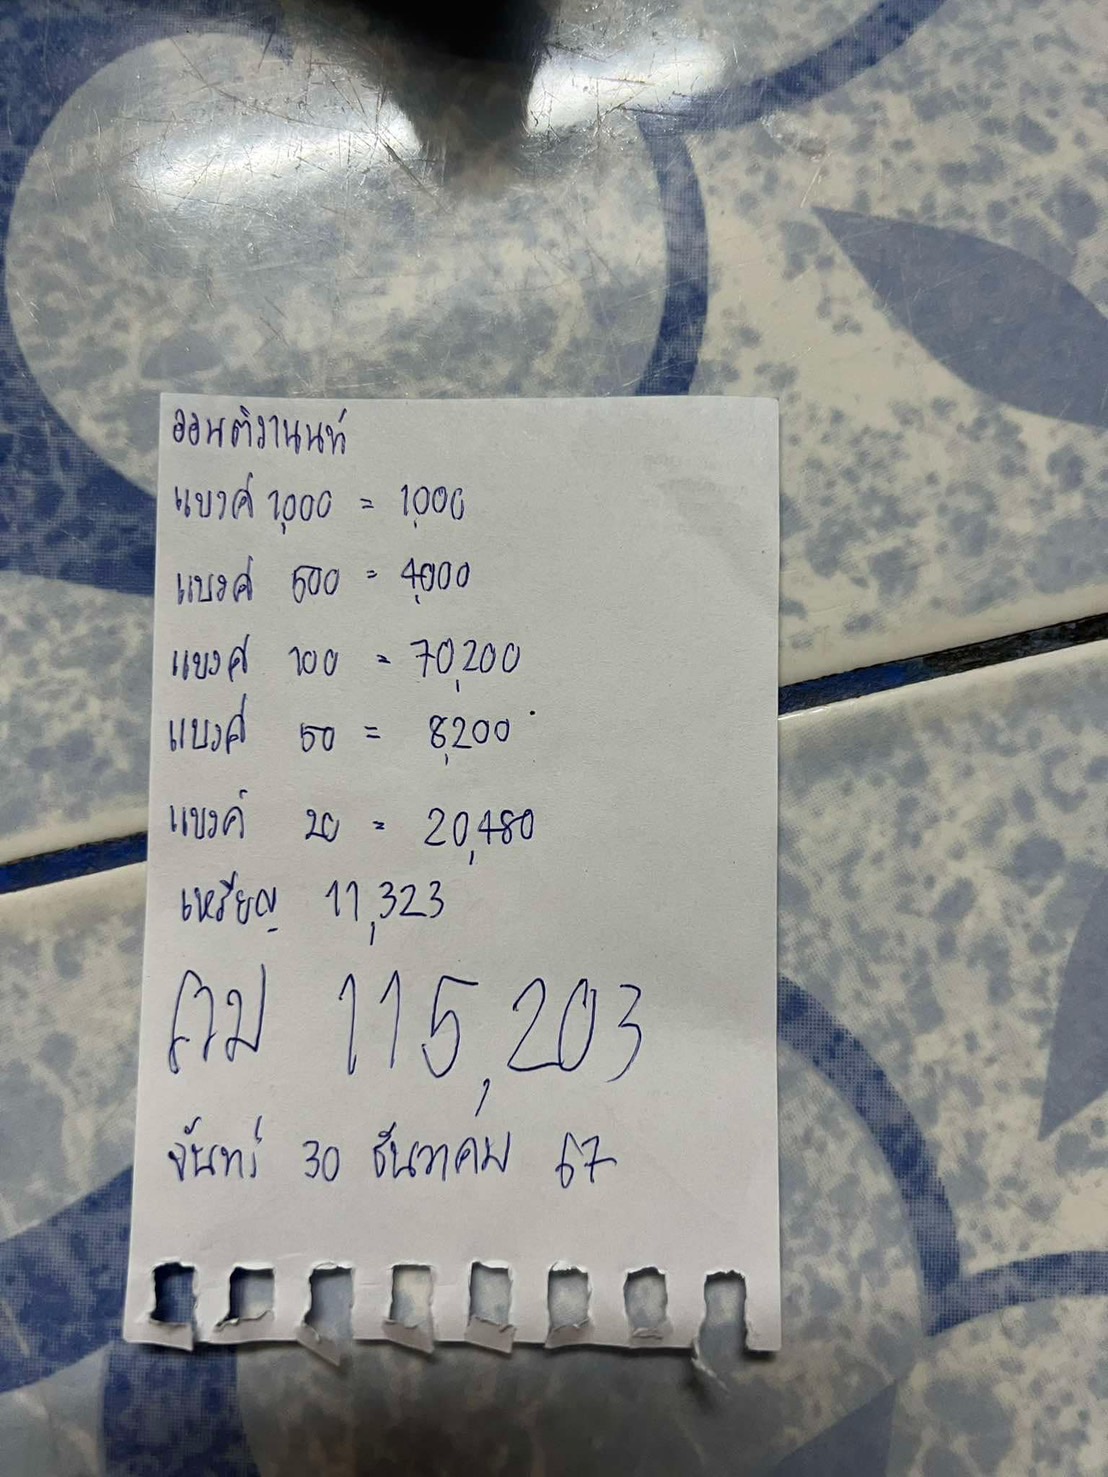 แบงค์ 1,000 = 1,000
แบงค์ 500 = 4,000
แบงค์ 100 = 70,200
แบงค์ 50 = 8,200
แบงค์ 20 = 20,480
เหรียญ 11,323
รวม 115,203
จันทร์ 30 ธันวาคม 67